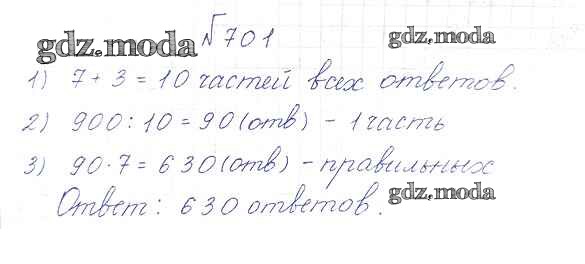 gdz.moda №701 gdz.moda
1) 7 + 3 = 10 частей всех ответов.
2) 900 : 10 = 90 (отв) - 1 часть
3) 90 · 7 = 630 (отв) - правильных
Ответ: 630 ответов. gdz.moda